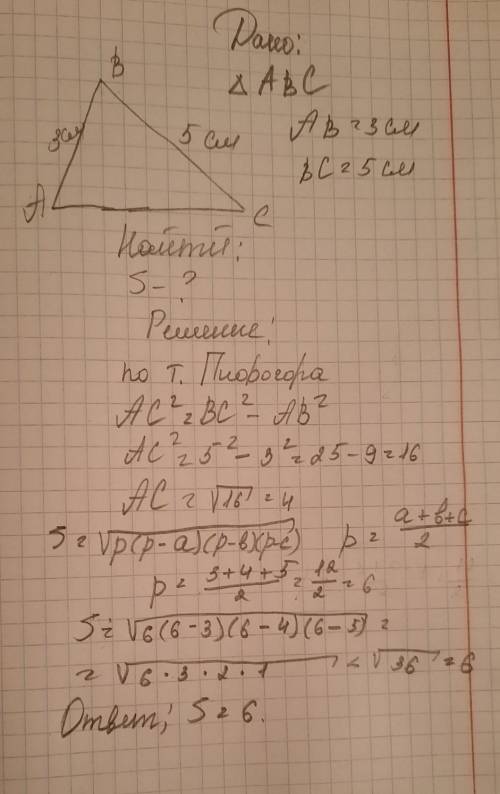 Дано:
B
△ ABC
3см
5 см
AB = 3 см
BC = 5 см
A
C
Найти:
S - ?
Решение:
по т. Пифагора
AC² = BC² - AB²
AC² = 5² - 3² = 25 - 9 = 16
AC = √16 = 4
S = √p(p-a)(p-b)(p-c) p = a+b+c/2
p = 3+4+5/2 = 12/2 = 6
S = √6(6-3)(6-4)(6-5) =
= √6·3·2·1 = √36 = 6
Ответ: S = 6.